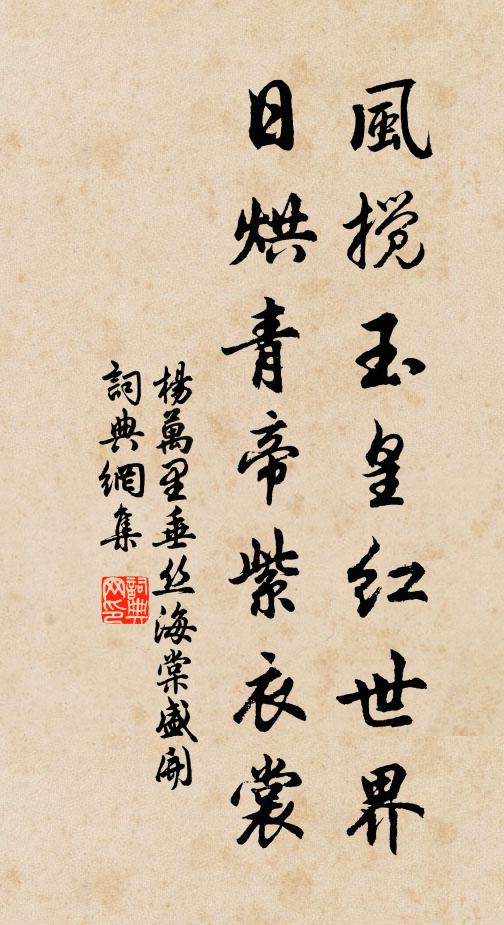 風攪玉皇紅世界
日烘青帝紫衣裳
楊萬里垂丝海棠盛開
詞典網集
詞典网印